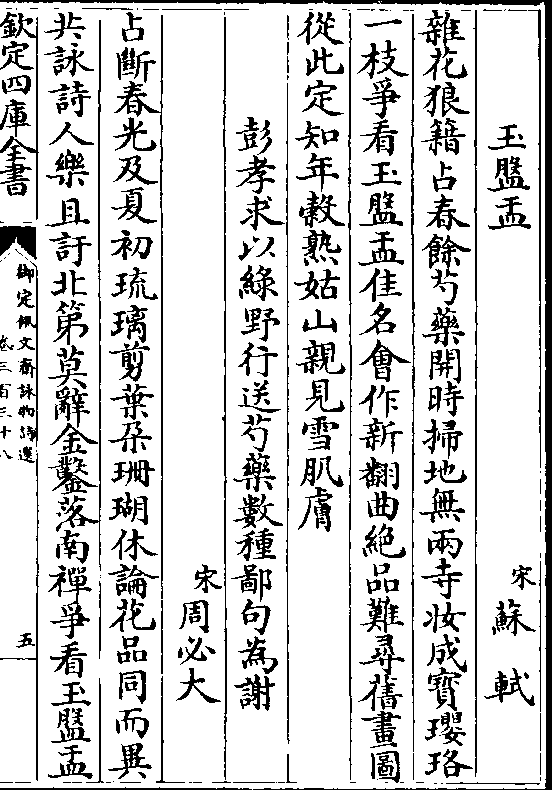 玉盤盂
宋 蘇軾
雜花狼籍占春餘芍藥開時掃地無兩寺妝成寶瓔珞
一枝爭看玉盤盂佳名會作新翻曲絶品難尋舊畫圖
從此定知年糓熟姑山親見雪肌膚
彭孝求以緑野行送芍藥數種鄙句為謝
宋 周必大
占斷春光及夏初琉璃剪葉朶珊瑚休論花品同而異
共詠詩人樂且訏北第莫辭金鑿落南禪爭看玉盤盂
欽定四庫全書
御定佩文齋詠物詩選
卷三百三十八
五